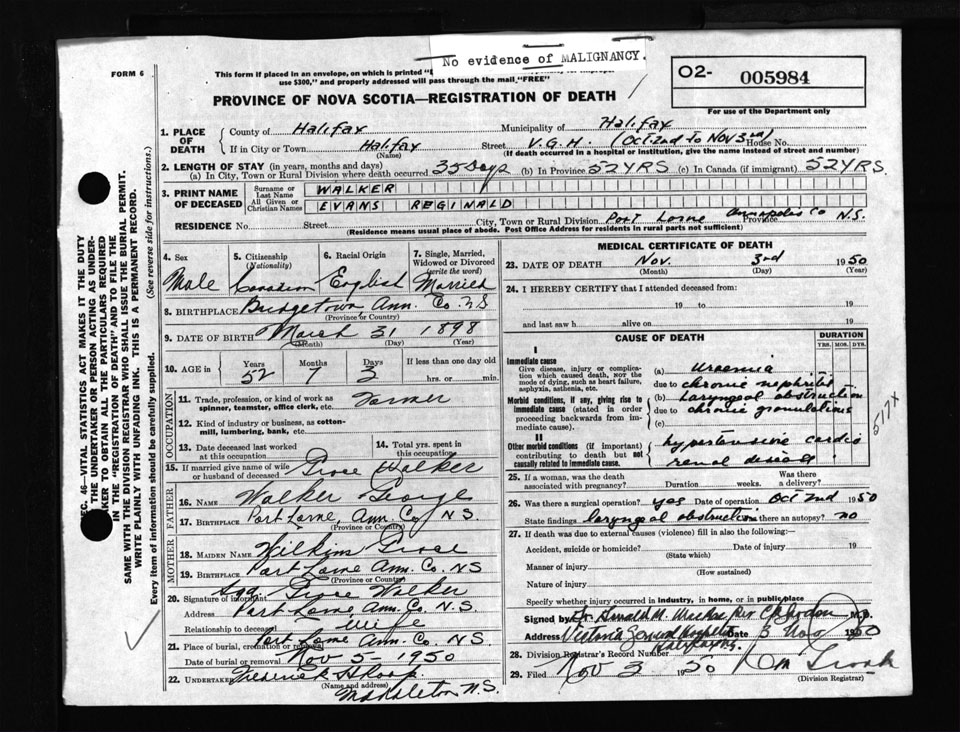 No evidence of MALIGNANCY.
FORM 6
This form if placed in an envelope, on which is printed
use $300," and properly addressed will pass through the mail "FREE"
O2- 005984
For use of the Department only
PROVINCE OF NOVA SCOTIA—REGISTRATION OF DEATH
1. PLACE OF DEATH
County of Halifax Municipality of Halifax
If in City or Town Halifax Street V.G.H. (Oct 2nd to Nov 3rd) House No.
(Name) (If death occurred in a hospital or institution, give the name instead of street and number)
2. LENGTH OF STAY (in years, months and days)
(a) In City, Town or Rural Division where death occurred 35 days (b) In Province 52 YRS (c) In Canada (if immigrant) 52 YRS.
3. PRINT NAME OF DECEASED
Surname or Last Name WALKER
All Given or Christian Names EVANS REGINALD
RESIDENCE No. Street City, Town or Rural Division Port Lorne Province Annapolis Co N.S.
(Residence means usual place of abode. Post Office Address for residents in rural parts not sufficient)
4. Sex
Male
5. Citizenship (Nationality)
Canadian
6. Racial Origin
English
7. Single, Married, Widowed or Divorced (write the word)
Married
8. BIRTHPLACE Bridgetown Ann. Co. N.S
(Province or Country)
9. DATE OF BIRTH March 31 1898
(Month) (Day) (Year)
10. AGE in Years Months Days If less than one day old
52 7 3 hrs. or min.
OCCUPATION
11. Trade, profession, or kind of work as spinner, teamster, office clerk, etc. Farmer
12. Kind of industry or business, as cotton-mill, lumbering, bank, etc.
13. Date deceased last worked at this occupation
14. Total yrs. spent in this occupation
15. If married give name of wife or husband of deceased Walker
FATHER
16. Name Walker George
17. Birthplace Port Lorne Ann. Co N.S.
(Province or Country)
MOTHER
18. Maiden Name
19. Birthplace Port Lorne Ann. Co. NS
(Province or Country)
20. Signature of informant Walker
Address Port Lorne Ann. Co. N.S.
Relationship to deceased Wife
21. Place of burial, cremation or removal Port Lorne Ann. Co. NS
Date of burial or removal Nov 5- 1950
22. UNDERTAKER Frederick
(Name and address) Middleton N.S.
MEDICAL CERTIFICATE OF DEATH
23. DATE OF DEATH Nov. 3rd 1950
(Month) (Day) (Year)
24. I HEREBY CERTIFY that I attended deceased from:
19 to 19
and last saw h alive on 19
CAUSE OF DEATH
DURATION
YRS. MOS. DYS.
I
Immediate cause
Give disease, injury or complication which caused death, not the mode of dying, such as heart failure, asphyxia, asthenia, etc.
(a) Uraemia
due to chronic nephritis
Morbid conditions, if any, giving rise to immediate cause (stated in order proceeding backwards from immediate cause).
(b) Laryngeal obstruction
due to chronic granulations
(c)
II
Other morbid conditions (if important) contributing to death but not causally related to immediate cause.
hypertensive cardio
renal disease
25. If a woman, was the death associated with pregnancy? Duration weeks. Was there a delivery?
26. Was there a surgical operation? yes Date of operation Oct 2nd 1950
State findings laryngeal obstruction Was there an autopsy? no
27. If death was due to external causes (violence) fill in also the following:—
Accident, suicide or homicide? Date of injury 19
(State which)
Manner of injury
(How sustained)
Nature of injury
Specify whether injury occurred in industry, in home, or in public place
Signed by M.D.
Address Victoria General Hospital Date 3 Nov 1950
Halifax N.S.
28. Division Registrar's Record Number
29. Filed Nov 3 1950
(Division Registrar)
SEC. 46—VITAL STATISTICS ACT MAKES IT THE DUTY
OF THE UNDERTAKER OR PERSON ACTING AS UNDER-
TAKER TO OBTAIN ALL THE PARTICULARS REQUIRED
IN THE "REGISTRATION OF DEATH" AND TO FILE THE
SAME WITH THE DIVISION REGISTRAR WHO SHALL ISSUE THE BURIAL PERMIT.
WRITE PLAINLY WITH UNFADING INK. THIS IS A PERMANENT RECORD.
Every item of information should be carefully supplied. (See reverse side for instructions.)